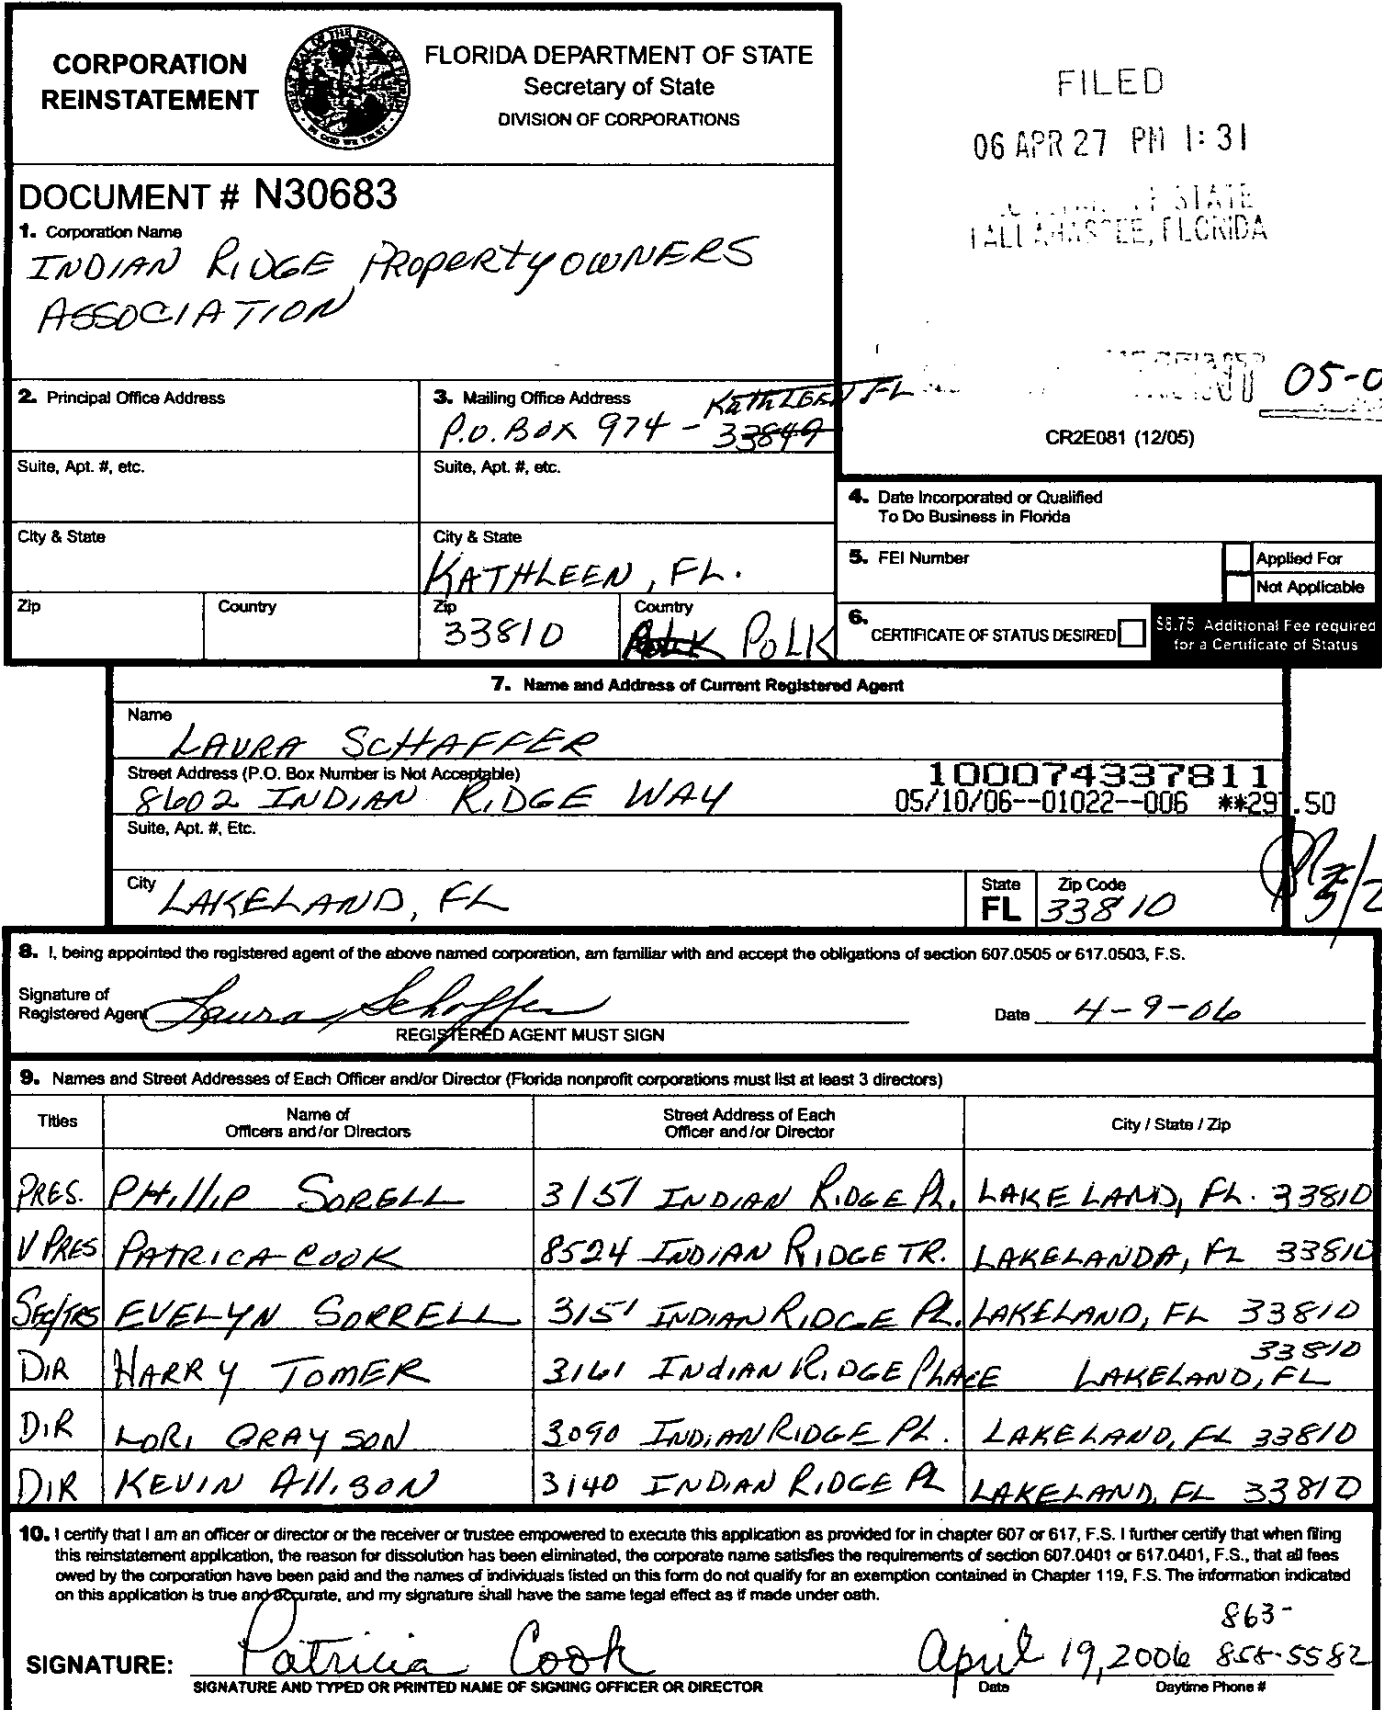 CORPORATION
REINSTATEMENT
FLORIDA DEPARTMENT OF STATE
Secretary of State
DIVISION OF CORPORATIONS
FILED
06 APR 27 PM 1:31
STATE
TALLAHASSEE, FLORIDA
DOCUMENT # N30683
1. Corporation Name
INDIAN RIDGE PROPERTYOWNERS
ASSOCIATION
05-0
CR2E081 (12/05)
2. Principal Office Address
3. Mailing Office Address
KATHLEEN FL
P.O. BOX 974 - 33849
Suite, Apt. #, etc.
Suite, Apt. #, etc.
City & State
City & State
KATHLEEN, FL.
Zip
Country
Zip
33810
Country
POLK POLK
4. Date Incorporated or Qualified
To Do Business in Florida
5. FEI Number
Applied For
Not Applicable
6. CERTIFICATE OF STATUS DESIRED
$8.75 Additional Fee required
for a Certificate of Status
7. Name and Address of Current Registered Agent
Name
LAURA SCHAFFER
Street Address (P.O. Box Number is Not Acceptable)
8602 INDIAN RIDGE WAY
100074337811
05/10/06--01022--006 **297.50
Suite, Apt. #, Etc.
City
LAKELAND, FL
State
FL
Zip Code
33810
8. I, being appointed the registered agent of the above named corporation, am familiar with and accept the obligations of section 607.0505 or 617.0503, F.S.
Signature of
Registered Agent Laura Schaffer
Date 4-9-06
REGISTERED AGENT MUST SIGN
9. Names and Street Addresses of Each Officer and/or Director (Florida nonprofit corporations must list at least 3 directors)
Titles
Name of
Officers and/or Directors
Street Address of Each
Officer and/or Director
City / State / Zip
PRES. PHILLIP SORELL 3151 INDIAN RIDGE PL. LAKELAND, FL. 33810
V PRES PATRICA COOK 8524 INDIAN RIDGE TR. LAKELANDA, FL 33810
SEC/TRS EVELYN SORRELL 3151 INDIAN RIDGE PL. LAKELAND, FL 33810
33810
DIR HARRY TOMER 3161 INDIAN RIDGE PLACE LAKELAND, FL
DIR LORI GRAYSON 3090 INDIAN RIDGE PL. LAKELAND, FL 33810
DIR KEVIN ALLISON 3140 INDIAN RIDGE PL LAKELAND, FL 33810
10. I certify that I am an officer or director or the receiver or trustee empowered to execute this application as provided for in chapter 607 or 617, F.S. I further certify that when filing
this reinstatement application, the reason for dissolution has been eliminated, the corporate name satisfies the requirements of section 607.0401 or 617.0401, F.S., that all fees
owed by the corporation have been paid and the names of individuals listed on this form do not qualify for an exemption contained in Chapter 119, F.S. The information indicated
on this application is true and accurate, and my signature shall have the same legal effect as if made under oath.
863-
SIGNATURE: Patricia Cook April 19, 2006 858-5582
SIGNATURE AND TYPED OR PRINTED NAME OF SIGNING OFFICER OR DIRECTOR
Date
Daytime Phone #